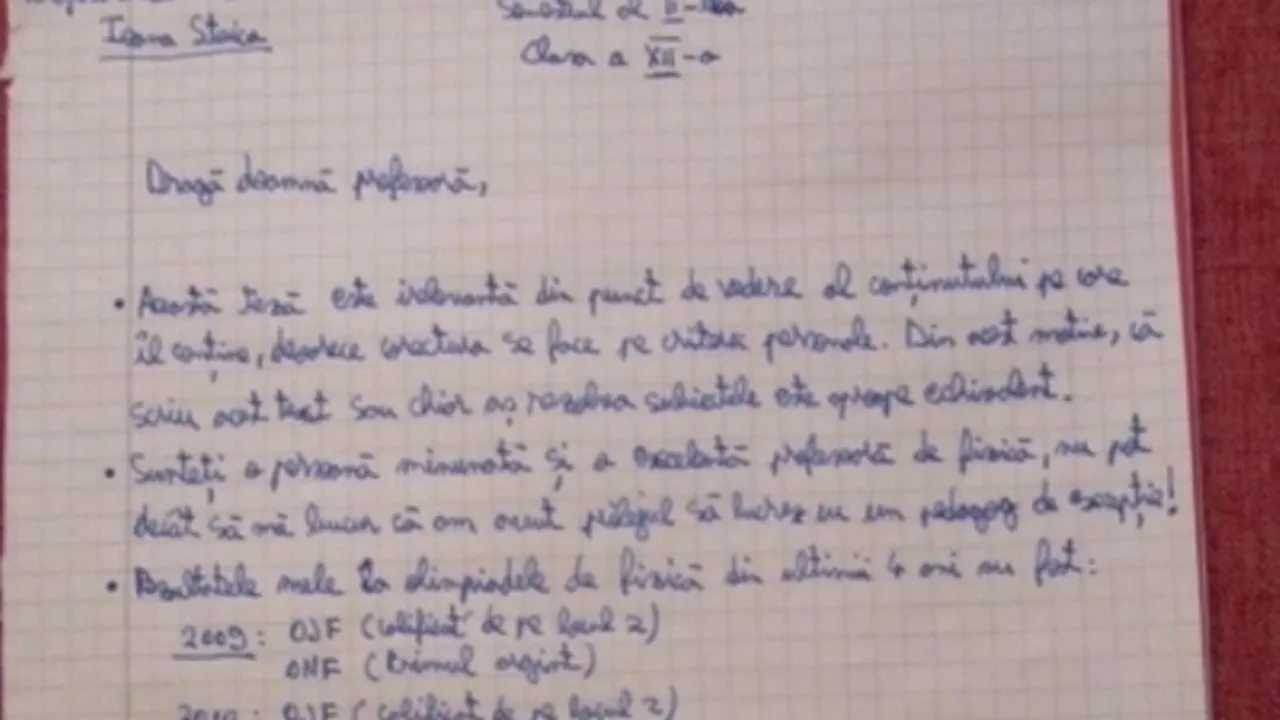 Ioana Staicu
Semestrul al II-lea
Clasa a XII-a
Dragă doamnă profesoară,
• Această teză este irelevantă din punct de vedere al conținutului pe care
îl conține, deoarece corectura se face pe criterii personale. Din acest motiv, că
scriu acest text sau chiar aș rezolva subiectele este aproape echivalent.
• Sunteți o persoană minunată și o excelentă profesoară de fizică, nu pot
decât să mă bucur că am avut prilejul să lucrez cu un pedagog de excepție!
• Rezultatele mele la olimpiadele de fizică din ultimii 4 ani au fost:
2009: OJF (calificat de pe locul 2)
ONF (premiul argint)
2010: OJF (calificat de pe locul 2)